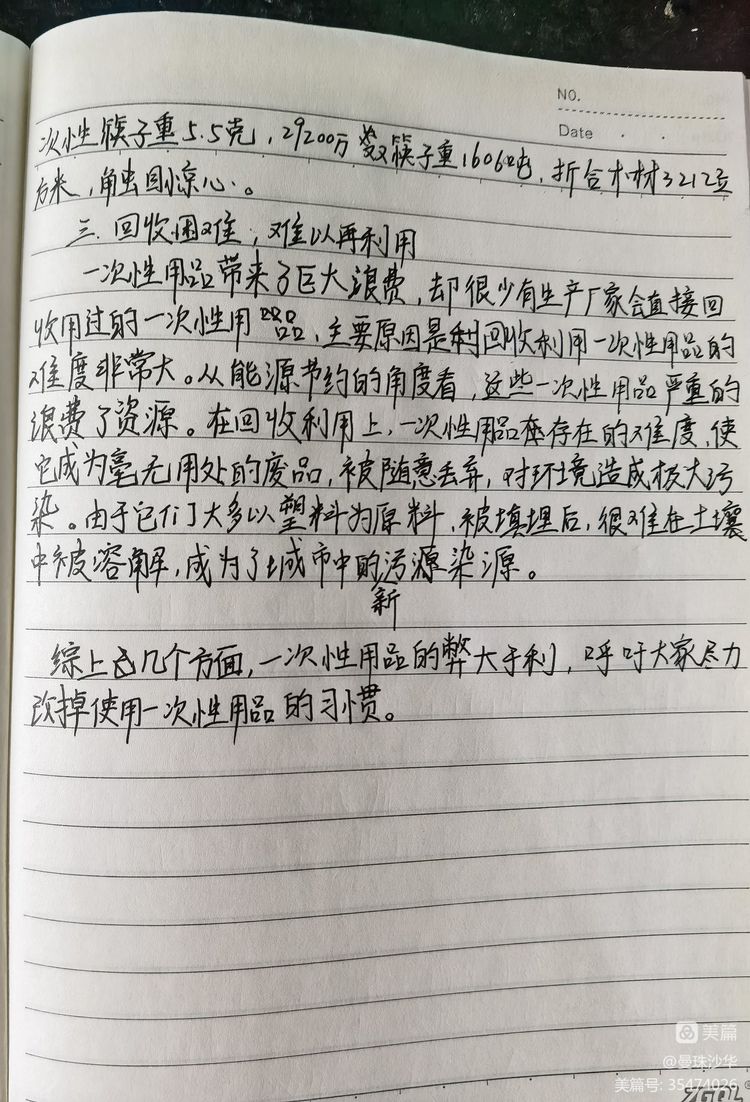 NO.
Date
次性筷子重5.5克，29200万双筷子重1606吨，折合木材3212立
方米，触目惊心。
三.回收困难，难以再利用
一次性用品带来了巨大浪费，却很少有生产厂家会直接回
收用过的一次性用品，主要原因是利回收利用一次性用品的
难度非常大。从能源节约的角度看，这些一次性用品严重的
浪费了资源。在回收利用上，一次性用品存在的难度，使
它成为毫无用处的废品，被随意丢弃，对环境造成极大污
染。由于它们大多以塑料为原料，被填埋后，很难在土壤
中被溶解，成为了城市中的新污源染源。
综上几个方面，一次性用品的弊大于利，呼吁大家尽力
改掉使用一次性用品的习惯。
美篇
@曼珠沙华
美篇号: 35474026